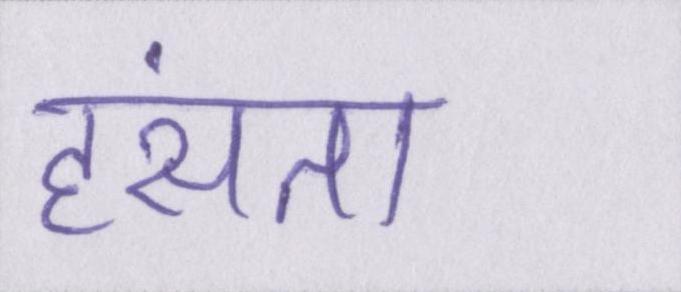 हंसता